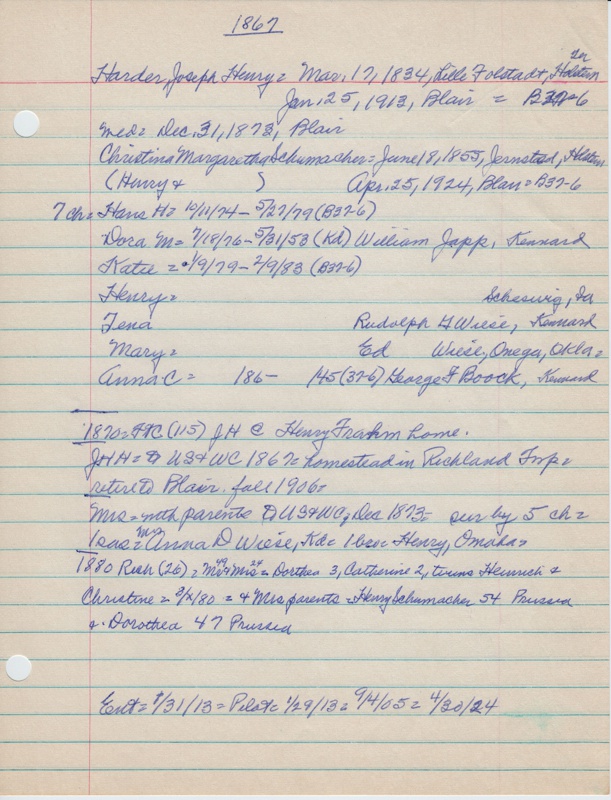 1867
Harder, Joseph Henry = Mar. 17, 1834, Lille Folstadt, Holstein
Jan. 25, 1913, Blair = B37-6
med = Dec. 31, 1873, Blair
Christina Margaretha Schumacher = June 18, 1855, Jernstad, Holstein
(Henry & ) Apr. 25, 1924, Blair = B37-6
7 ch = Hans H = 10/11/74 - 5/27/79 (B37-6)
Dora M = 7/18/76 - 5/31/53 (Kd) William Japp, Kennard
Katie = 1/9/79 - 2/9/83 (B37-6)
Henry = Scheswig, Ia
Tena Rudolph G Wiese, Kennard
Mary = Ed Wiese, Omega, Okla =
Anna C = 186- /45 (37-6) George F Boock, Kennard
1870 = (115) J H @ Henry Frahm home.
JHH = to US & WC 1867 = homestead in Richland Twp =
retired to Blair fall 1906 =
Mrs = with parents to US & WC, Dec 1873 = sur by 5 ch =
1 sis = Mrs Anna D Wiese, Kd = 1 bro = Henry, Omaha =
1880 Rich (26) = Mr 49 Mrs 24 = Dorthea 3, Catherine 2, twins Heinrich &
Christine = 2/2/80 = & Mrs parents = Henry Schumacher 54 Prussia
& Dorothea 47 Prussia
Ent = 1/31/13 = Pilot = 1/29/13 = 9/4/05 = 4/30/24